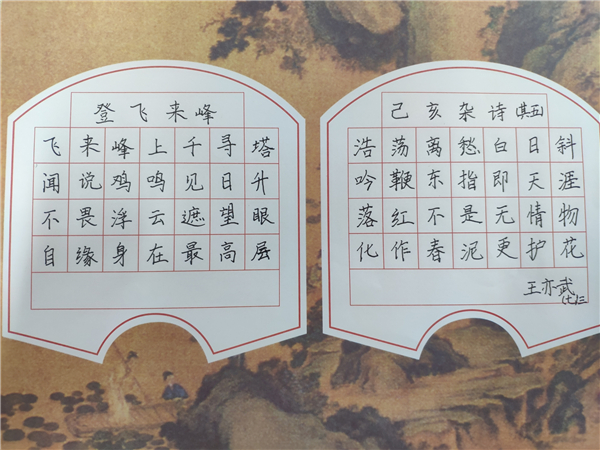 登飞来峰
飞来峰上千寻塔
闻说鸡鸣见日升
不畏浮云遮望眼
自缘身在最高层
己亥杂诗(其五)
浩荡离愁白日斜
吟鞭东指即天涯
落红不是无情物
化作春泥更护花
王亦武